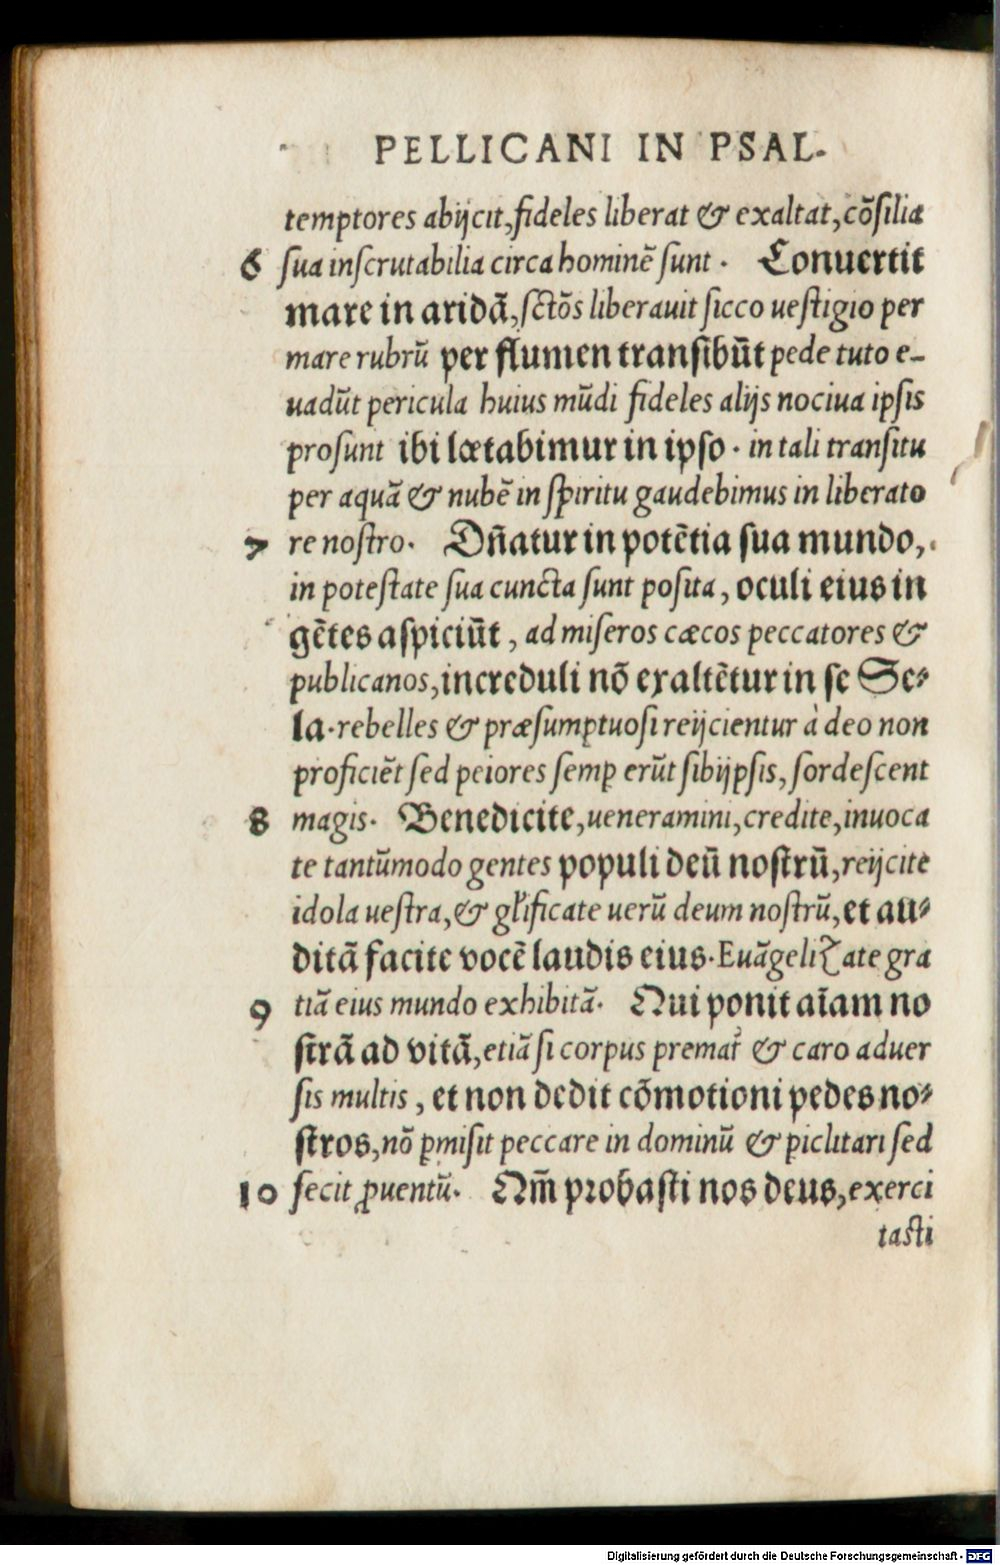 PELLICANI IN PSAL.
temptores abijcit, fideles liberat & exaltat, cõsilia
6 sua inscrutabilia circa hominẽ sunt. Conuertit
mare in aridã, sctõs liberauit sicco uestigio per
mare rubrũ per flumen transibũt pede tuto e-
uadũt pericula huius mũdi fideles alijs nociua ipsis
prosunt ibi lætabimur in ipso. in tali transitu
per aquã & nubẽ in spiritu gaudebimus in liberato
7 re nostro. Dñatur in potẽtia sua mundo,
in potestate sua cuncta sunt posita, oculi eius in
gẽtes aspiciũt, ad miseros cæcos peccatores &
publicanos, increduli nõ exaltẽtur in se Se-
la. rebelles & præsumptuosi reijcientur à deo non
proficiẽt sed peiores semꝑ erũt sibijpsis, sordescent
8 magis. Benedicite, ueneramini, credite, inuoca
te tantũmodo gentes populi deũ nostrũ, reijcite
idola uestra, & gl̃ificate uerũ deum nostrũ, et au-
ditã facite vocẽ laudis eius. Euãgelizate gra
9 tiã eius mundo exhibitã. Qui ponit aĩam no
strã ad vitã, etiã si corpus premat̃ & caro aduer
sis multis, et non dedit cõmotioni pedes no-
stros, nõ ꝑmisit peccare in dominũ & ꝑiclitari sed
10 fecit ꝓuentũ. Qm̃ probasti nos deus, exerci
tasti
Digitalisierung gefördert durch die Deutsche Forschungsgemeinschaft - DFG